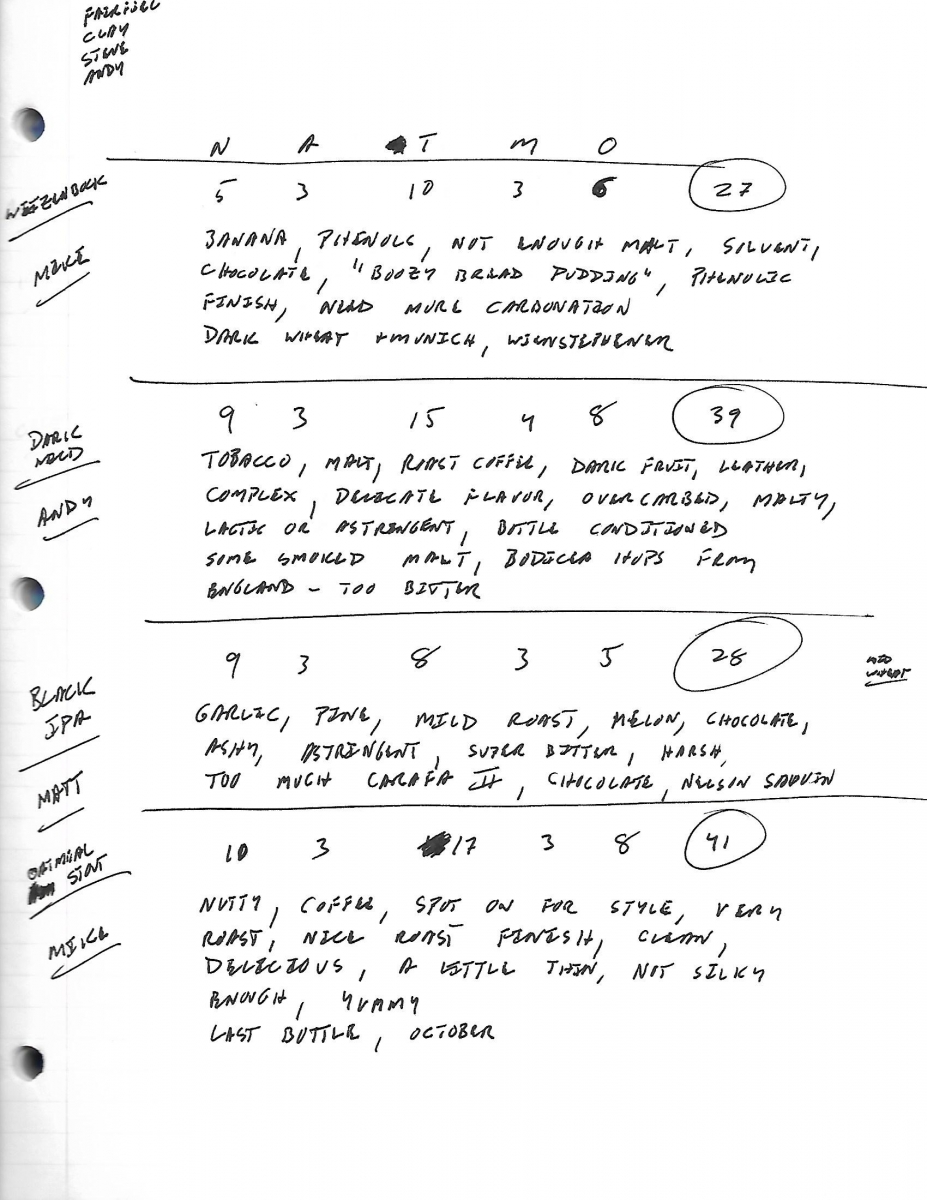 CLAY
STEVE
ANDY
N A T M O
WEIZENBOCK
5 3 10 3 6 27
MIKE
BANANA, PHENOLS, NOT ENOUGH MALT, SOLVENT,
CHOCOLATE, "BOOZY BREAD PUDDING", PHENOLIC
FINISH, NEED MORE CARBONATION
DARK WHEAT + MUNICH, WIENSTEPHENER
9 3 15 4 8 39
DARK
MILD
ANDY
TOBACCO, MALT, ROAST COFFEE, DARK FRUIT, LEATHER,
COMPLEX, DELICATE FLAVOR, OVERCARBED, MALTY,
LACTIC OR ASTRINGENT, BOTTLE CONDITIONED
SOME SMOKED MALT, BODICEA HOPS FROM
ENGLAND - TOO BITTER
9 3 8 3 5 28
MID
WHEAT
BLACK
IPA
MATT
GARLIC, PINE, MILD ROAST, MELON, CHOCOLATE,
ASHY, ASTRINGENT, SUPER BITTER, HARSH,
TOO MUCH CARAFA II, CHOCOLATE, NELSON SAUVIN
10 3 17 3 8 41
OATMEAL
STOUT
MIKE
NUTTY, COFFEE, SPOT ON FOR STYLE, VERY
ROAST, NICE ROAST FINISH, CLEAN,
DELICIOUS, A LITTLE THIN, NOT SILKY
ENOUGH, YUMMY
LAST BOTTLE, OCTOBER